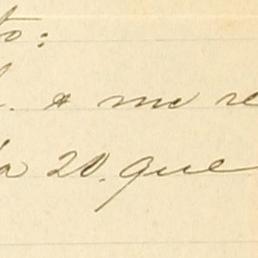 to:
. a me re
a 20. que